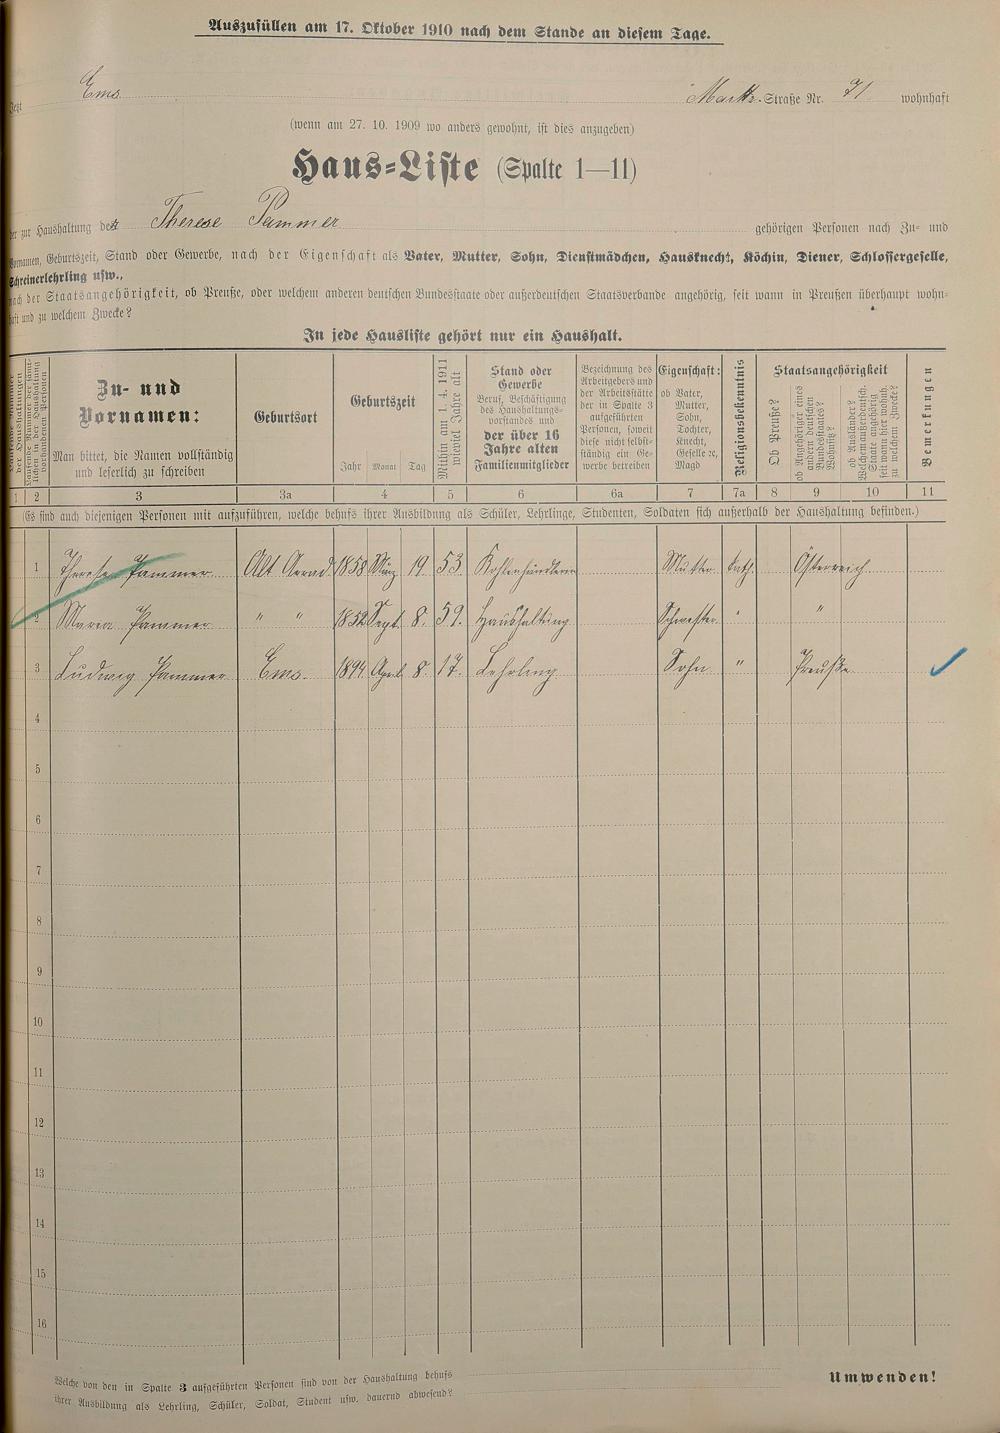 Auszufüllen am 17. Oktober 1910 nach dem Stande an diesem Tage.
Jetzt Ems Markt-Straße Nr. 71 wohnhaft
(wenn am 27. 10. 1909 wo anders gewohnt, ist dies anzugeben)
Haus-Liste (Spalte 1—11)
der zur Haushaltung der Therese Pammer gehörigen Personen nach Zu- und
Vornamen, Geburtszeit, Stand oder Gewerbe, nach der Eigenschaft als Vater, Mutter, Sohn, Dienstmädchen, Hausknecht, Köchin, Diener, Schlossergeselle,
Schreinerlehrling usw.,
nach der Staatsangehörigkeit, ob Preuße, oder welchem anderen deutschen Bundesstaate oder außerdeutschen Staatsverbande angehörig, seit wann in Preußen überhaupt wohn-
haft und zu welchem Zwecke?
In jede Hausliste gehört nur ein Haushalt.
Laufende Nummer der sämt-
lichen in der Haushaltung
vorhandenen Personen
Zu- und
Vornamen:
Man bittet, die Namen vollständig
und leserlich zu schreiben
Geburtsort
Geburtszeit
Jahr Monat Tag
Mithin am 1. 4. 1911
wieviel Jahre alt
Stand oder
Gewerbe
Beruf, Beschäftigung
des Haushaltungs-
vorstandes und
der über 16
Jahre alten
Familienmitglieder
Bezeichnung des
Arbeitgebers und
der Arbeitsstätte
der in Spalte 3
aufgeführten
Personen, soweit
diese nicht selbst-
ständig ein Ge-
werbe betreiben
Eigenschaft:
ob Vater,
Mutter,
Sohn,
Tochter,
Knecht,
Geselle ec,
Magd
Religionsbekenntnis
Staatsangehörigkeit
Ob Preuße?
ob Angehöriger eines
andern deutschen
Bundesstaates?
Wohnsitz?
ob Ausländer?
Welchem außerdeutsch.
Staate angehörig
seit wann hier wohnh.
zu welchem Zwecke?
Bemerkungen
1 2 3 3a 4 5 6 6a 7 7a 8 9 10 11
(Es sind auch diejenigen Personen mit aufzuführen, welche behufs ihrer Ausbildung als Schüler, Lehrlinge, Studenten, Soldaten sich außerhalb der Haushaltung befinden.)
1 Therese Pammer Alt 1858 März 19 53 Kohlenhändlerin Mutter kath. Österreich
2 Maria Pammer " " 1852 Sept. 8. 59. Haushaltung Schwester " "
3 Ludwig Pammer Ems 1894 April 8. 17. Lehrling Sohn " Preuße
4
5
6
7
8
9
10
11
12
13
14
15
16
Welche von den in Spalte 3 aufgeführten Personen sind von der Haushaltung behufs
ihrer Ausbildung als Lehrling, Schüler, Soldat, Student usw. dauernd abwesend?
Umwenden!